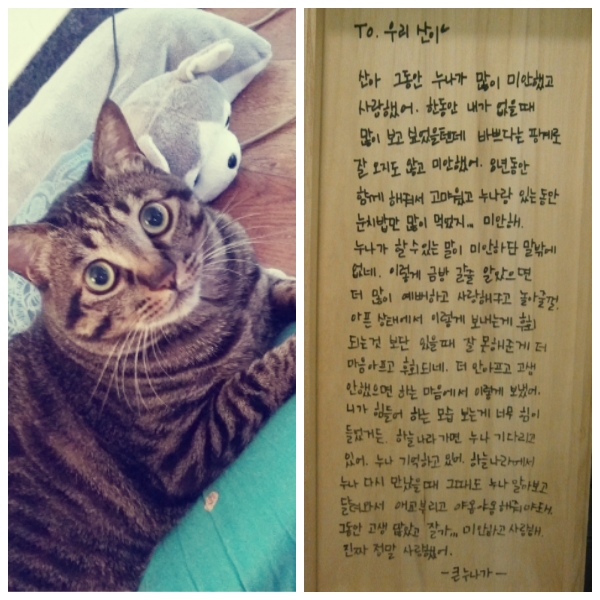 TO. 우리 산이~
산아 그동안 누나가 많이 미안했고
사랑했어. 한동안 내가 없을때
많이 보고 보었을텐데 바쁘다는 핑계로
잘 오지도 않고 미안했어. 8년동안
함께 해줘서 고마웠고 누나랑 있는동안
눈치밥만 많이 먹었지... 미안해.
누나가 할수있는 말이 미안하단 말밖에
없네. 이렇게 금방 갈줄 알았으면
더 많이 예뻐하고 사랑해주고 놀아줄걸.
아픈 상태에서 이렇게 보내는게 후회
되는것 보단 있을때 잘 못해준게 더
마음아프고 후회되네. 더 안아프고 고생
안했으면 하는 마음에서 이렇게 보냈어.
니가 힘들어 하는 모습 보는게 너무 힘이
들었거든. 하늘나라 가면 누나 기다리고
있어. 누나 기억하고 요. 하늘나라에서
누나 다시 만났을때 그때도 누나 알아보고
달려와서 애교부리고 야옹야옹 해줘야돼.
그동안 고생 많았고 잘가... 미안하고 사랑해.
진짜 정말 사랑했어.
-큰누나가-